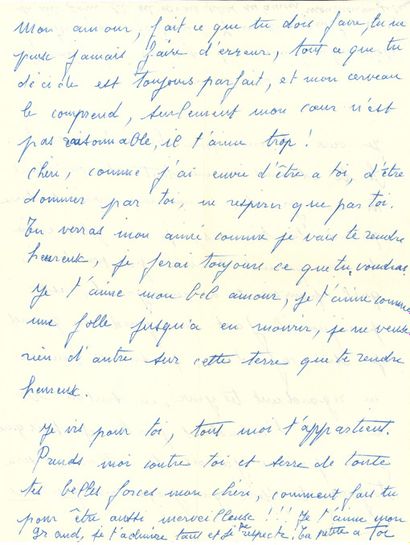 Mon amour, fait ce que tu dois faire, tu ne
peux jamais faire d'erreur, tout ce que tu
décide est toujours parfait, et mon cerveau
le comprend, seulement mon cœur n'est
pas raisonnable, il t'aime trop!
Chéri, comme j'ai envie d'être a toi, d'être
dominer par toi, ne respirer que par toi.
Tu verras mon aimé comme je vais te rendre
heureux, je ferai toujours ce que tu voudras.
Je t'aime mon bel amour, je t'aime comme
une folle jusqu'a en mourir, je ne veux
rien d'autre sur cette terre que te rendre
heureux.
Je vis pour toi, tout moi t'appartient.
Prends moi contre toi et serre de toute
tes belles forces mon chéri, comment fais tu
pour être aussi merveilleux!!! Je t'aime mon
grand, je t'admire tant et je te respecte. ta petite a toi